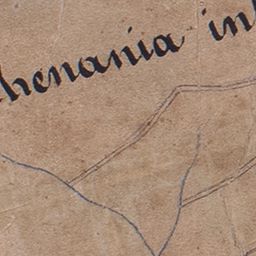 henania in